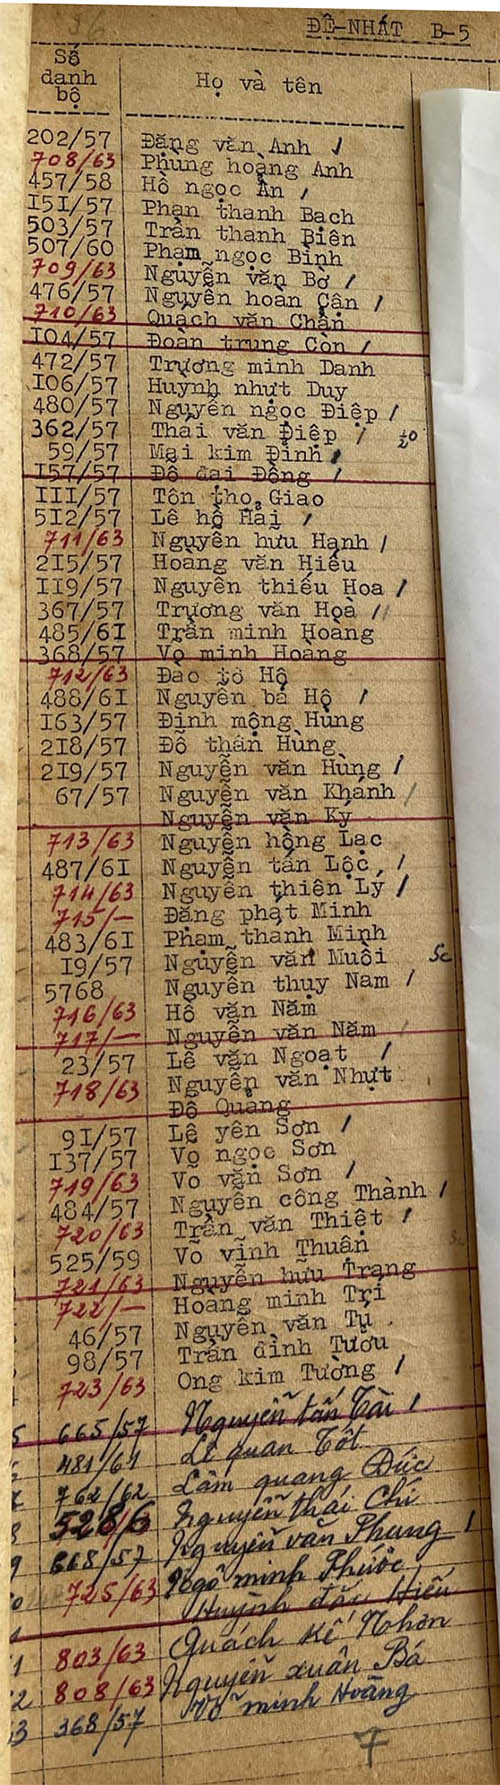 ĐỆ-NHẤT B-5
Số danh bộ Họ và tên
202/57 Đặng văn Anh /
708/63 Phùng hoàng Anh
457/58 Hồ ngọc Ẩn /
151/57 Phan thanh Bạch
503/57 Trần thanh Biên
507/60 Phạm ngọc Bình
709/63 Nguyễn văn Bờ /
476/57 Nguyễn hoàn Cận /
710/63 Quách văn Chấn
104/57 Đoàn trung Còn /
472/57 Trương minh Danh
106/57 Huỳnh nhựt Duy
480/57 Nguyễn ngọc Điệp /
362/57 Thái văn Điệp /
59/57 Mai kim Đỉnh /
157/57 Đỗ đại Đồng /
111/57 Tôn thọ Giao
512/57 Lê hồ Hải /
711/63 Nguyễn hữu Hạnh /
215/57 Hoàng văn Hiếu
119/57 Nguyễn thiếu Hoa /
367/57 Trương văn Hoà //
485/61 Trần minh Hoang
368/57 Vo minh Hoàng
712/63 Đao tô Hộ
488/61 Nguyễn bá Hộ /
163/57 Định mộng Hùng
218/57 Đỗ thần Hùng
219/57 Nguyễn văn Hùng /
67/57 Nguyễn văn Khánh /
Nguyễn văn Ký
713/63 Nguyễn hồng Lạc
487/61 Nguyễn tấn Lộc /
714/63 Nguyễn thiên Lý /
715/— Đặng phát Minh
483/61 Phạm thanh Minh
19/57 Nguyễn văn Muôi
5768 Nguyễn thụy Nam /
716/63 Hồ văn Năm
717/— Nguyễn văn Năm /
23/57 Lê văn Ngoạt /
718/63 Nguyễn văn Nhựt
Đỗ Quảng
91/57 Lê yên Sơn /
137/57 Vo ngọc Sơn
719/63 Vo văn Sơn /
484/57 Nguyễn công Thành /
720/63 Trần văn Thiệt /
525/59 Võ vĩnh Thuân
721/63 Nguyễn hữu Trang
722/— Hoàng minh Trí
46/57 Nguyễn văn Tụ
98/57 Trần đình Tươu
723/63 Ong kim Tường /
665/57 Nguyễn tấn Tài /
481/61 Lê quan Tốt
762/62 Lâm quang Đức
5286 Nguyễn thái Chí
668/57 Nguyễn văn Phung /
725/63 Ngô minh Phước
Huỳnh đắc Hiếu
803/63 Quách kế Nhơn
808/63 Nguyễn xuân Bá
368/57 Võ minh Hoàng
7